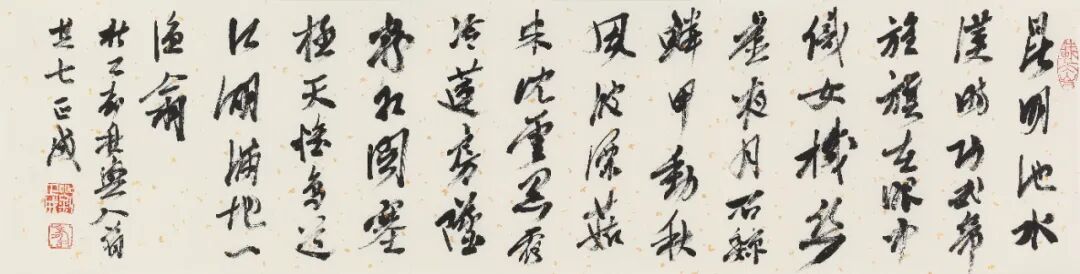 昆明池水
漢時功武帝
旌旗在眼中
織女機絲
虛夜月石鯨
鱗甲動秋
風波漂菰
米沈雲黑露
冷蓮房墜
粉紅關塞
極天惟鳥道
江湖滿地一
漁翁
杜工部秋興八首
其七 正成